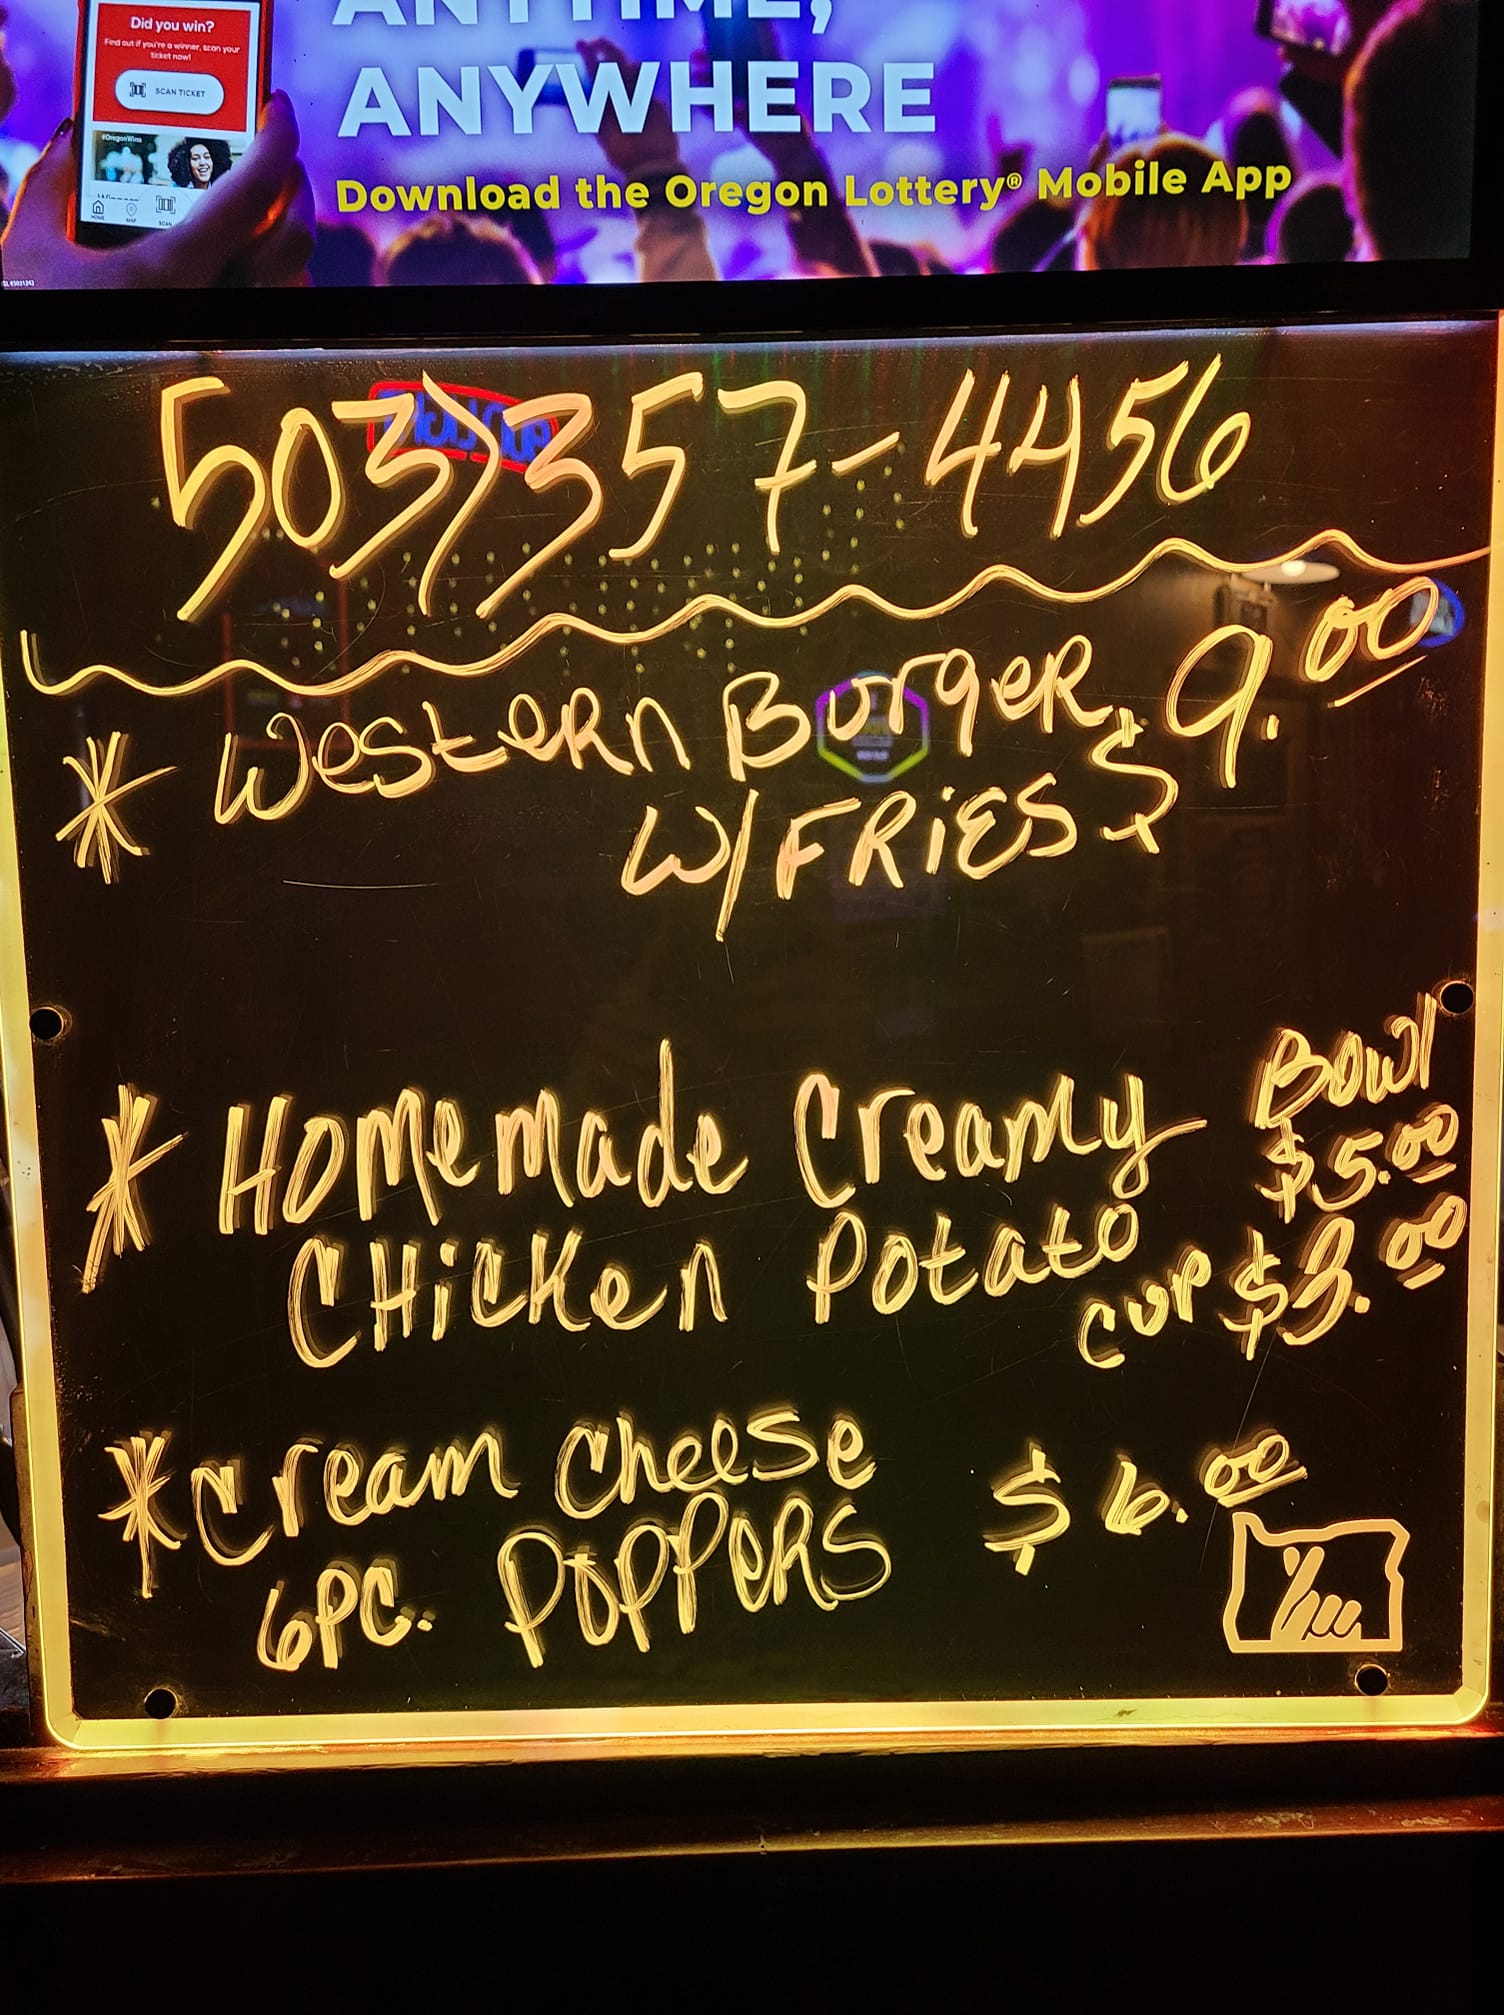 Did you win?
Find out if you're a winner, scan your
ticket now!
SCAN TICKET
#OregonWins
HOME MAP SCAN
ANYTIME,
ANYWHERE
Download the Oregon Lottery® Mobile App
503)357-4456
* Western Burger $9.00
W/FRIES
Bowl
* Homemade Creamy $5.00
CHicken Potato CUP $3.00
*Cream Cheese $6.00
6PC. POPPERS